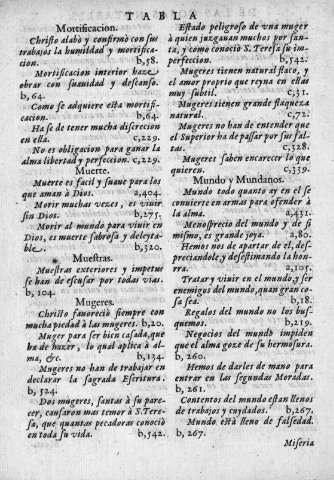 TABLA
Mortificacion.
Christo alabò y confirmò con sus
trabajos la humildad y mortifica-
cion. b,58.
Mortificacion interior haze
obrar con suauidad y descanso.
b, 64.
Como se adquiere esta mortifi-
cacion. b,64.
Ha se de tener mucha discrecion
en ella. c,229.
No es obligacion para ganar la
alma libertad y perfeccion. c,229.
Muerte.
Muerte es facil y suaue para los
que aman à Dios. a,404.
Morir muchas vezes, es viuir
sin Dios. b,275.
Morir al mundo para viuir en
Dios, es muerte sabrosa y deleyta-
ble. b,320.
Muestras.
Muestras exteriores y impetus
se han de escusar por todas vias.
b, 104.
Mugeres.
Christo fauoreciò siempre con
mucha piedad à las mugeres. b,20.
Muger para ser bien casada, que
ha de hazer, lo qual aplica à al-
ma, &c. b,134.
Mugeres no han de trabajar en
declarar la sagrada Escritura.
b, 524.
Dos mugeres, santas à su pare-
cer, causaron mas temor à S. Tere-
sa, que quantas pecadoras conociò
en toda su vida. b,542.
Estado peligroso de vna muger
à quien juzgauan muchos por san-
ta, y como conociò S. Teresa su im-
perfeccion. b,542.
Mugeres tienen natural flaco, y
el amor proprio que reyna en ellas
muy subtil. c,31.
Mugeres tienen grande flaqueza
natural. c,72.
Mugeres no han de entender que
el Superior ha de passar por sus fal-
tas. c,328.
Mugeres saben encarecer lo que
quieren. c,359.
Mundo y Mundanos.
Mundo todo quanto ay en el se
conuierte en armas para ofender à
la alma. a,431.
Menosprecio del mundo y de si
mismo, es grande joya. a,80.
Hemos nos de apartar de el, des-
preciandole, y desestimando la hon-
ra. a,105.
Tratar y viuir en el mundo, y ser
enemigos del mundo, quan gran co-
sa sea. b,18.
Regalos del mundo no los bus-
quemos. b,219.
Negocios del mundo impiden
que el alma goze de su hermosura.
b, 260.
Hemos de darles de mano para
entrar en las segundas Moradas.
b, 261.
Contentos del mundo estan llenos
de trabajos y cuydados. b,267.
Mundo està lleno de falsedad.
b, 267.
Miseria